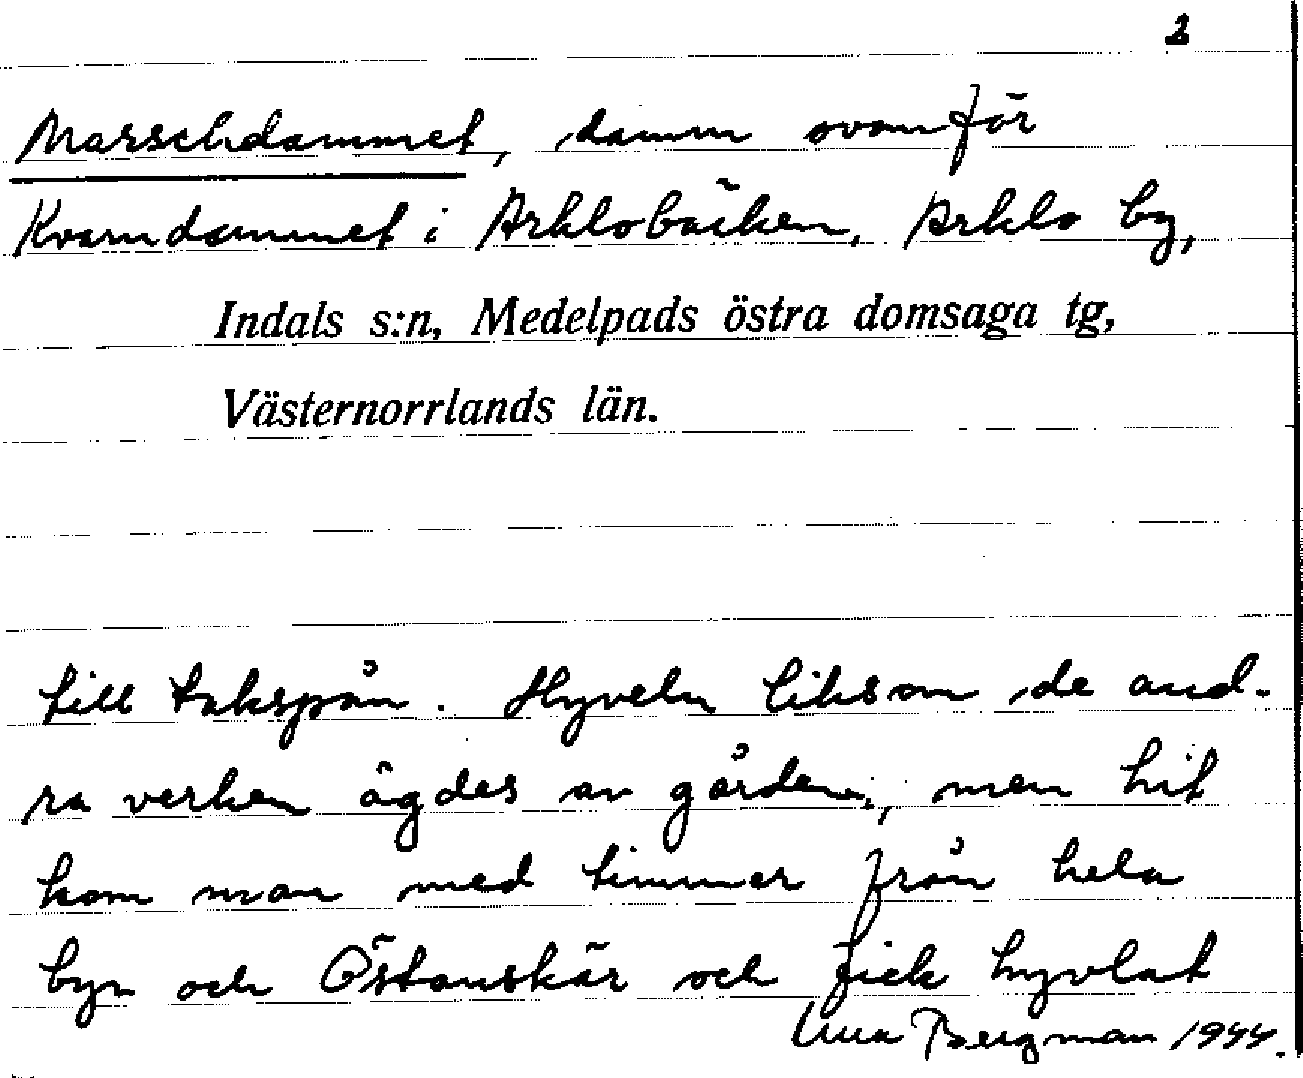 2
Marschdammet, damm ovanför
Kvarndammet i Arklobäcken, Arklo by,
Indals s:n, Medelpads östra domsaga tg,
Västernorrlands län.
till takspån. Hyveln liksom de and-
ra verken ägdes av gården, men hit
kom man med timmer från hela
byn och Östanskär och fick hyvlat
Bergman 1944.